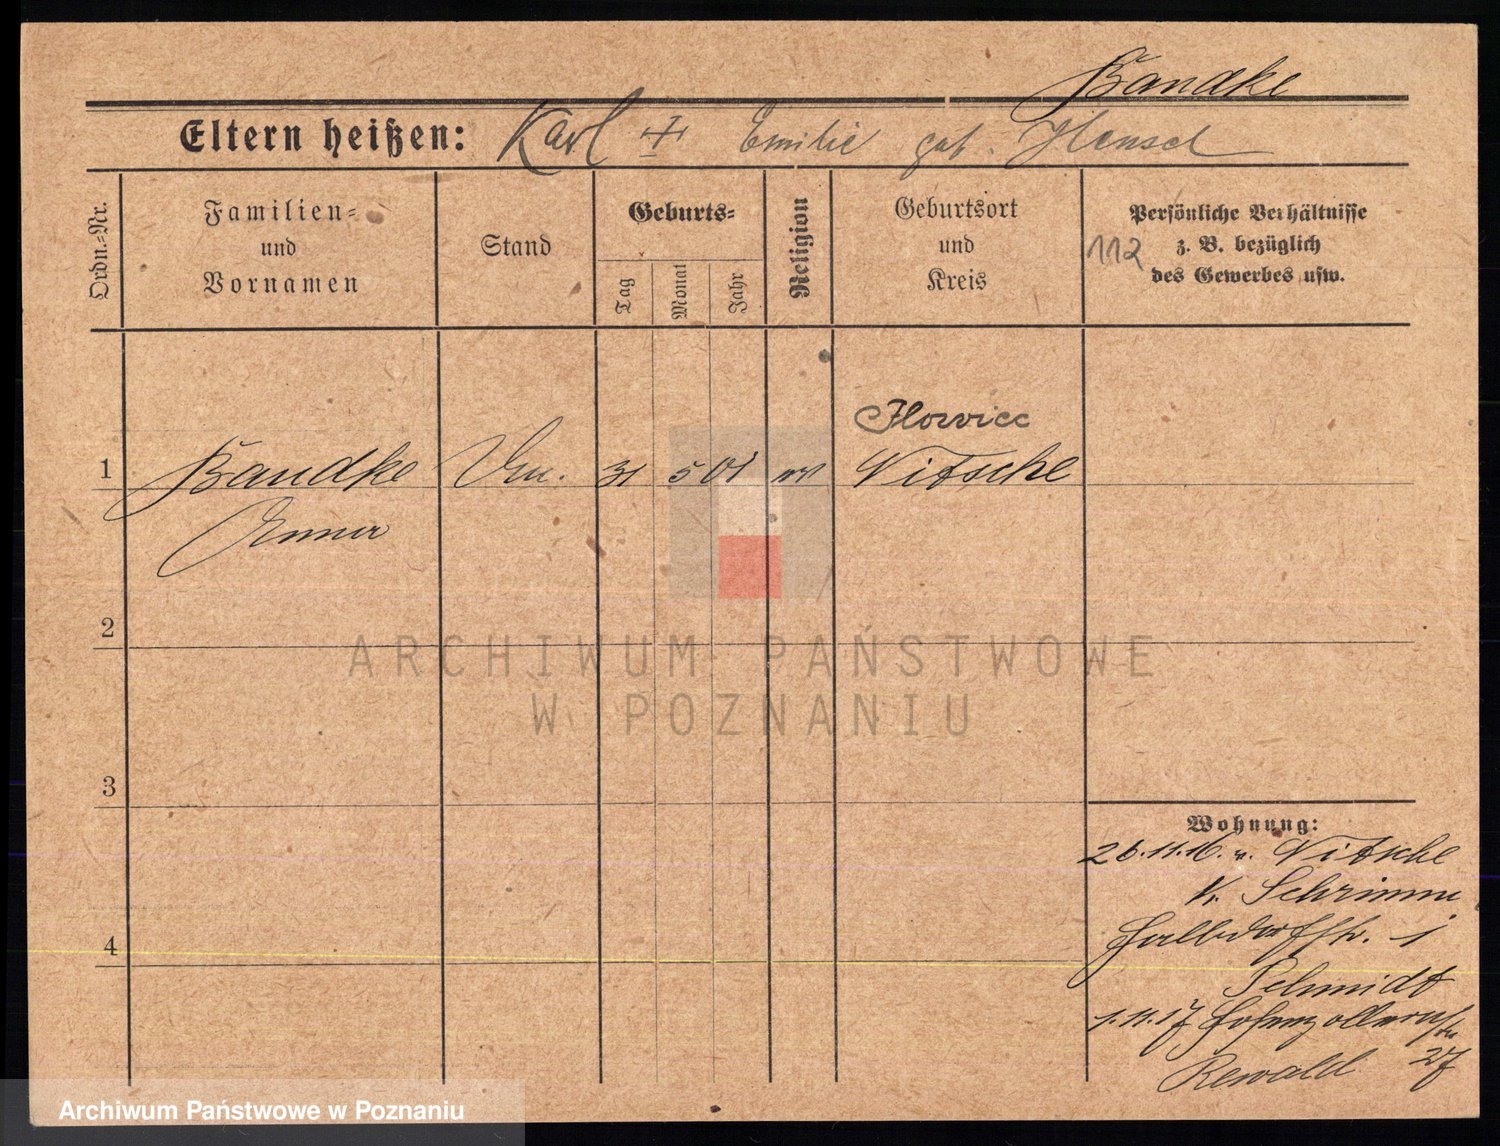 Bandke
Eltern heißen: Karl Emilie geb. Hensel
Ordn.-Nr.
Familien-
und
Vornamen
Stand
Geburts-
Tag
Monat
Jahr
Religion
Geburtsort
und
Kreis
Persönliche Verhältnisse
z. B. bezüglich
des Gewerbes usw.
112
Ilowiec
1 Bandke 31 5 01 Nitsche
2
3
4
Wohnung:
26.11.16. v. Nitsche
K. Schrimm
Halbdorfstr. 1
Schmidt
1.11.17 Hohenzollernstr
27
Rewald
ARCHIWUM PAŃSTWOWE
W POZNANIU
Archiwum Państwowe w Poznaniu